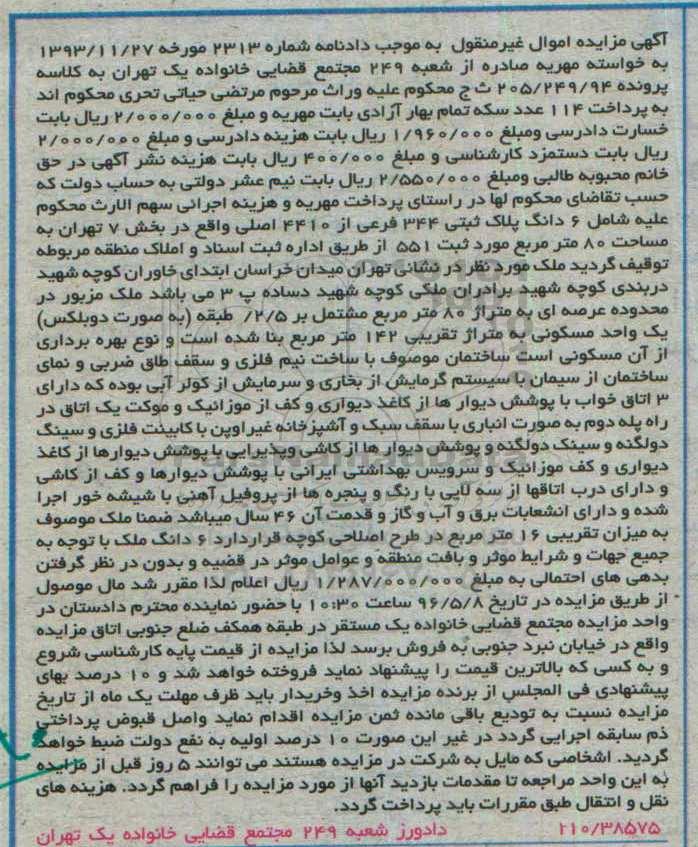 آگهی مزایده اموال غیرمنقول به موجب دادنامه شماره ۲۳۱۳ مورخه ۱۳۹۳/۱۱/۲۷
به خواسته مهریه صادره از شعبه ۲۴۹ مجتمع قضایی خانواده یک تهران به کلاسه
پرونده ۲۰۵/۲۴۹/۹۴ ث ج محکوم علیه وراث مرحوم مرتضی حیاتی تحری محکوم اند
به پرداخت ۱۱۴ عدد سکه تمام بهار آزادی بابت مهریه و مبلغ ۲/۰۰۰/۰۰۰ ریال بابت
خسارت دادرسی ومبلغ ۱/۹۶۰/۰۰۰ ریال بابت هزینه دادرسی و مبلغ ۲/۰۰۰/۰۰۰
ریال بابت دستمزد کارشناسی و مبلغ ۴۰۰/۰۰۰ ریال بابت هزینه نشر آگهی در حق
خانم محبوبه طالبی ومبلغ ۲/۵۵۰/۰۰۰ ریال بابت نیم عشر دولتی به حساب دولت که
حسب تقاضای محکوم لها در راستای پرداخت مهریه و هزینه اجرائی سهم الارث محکوم
علیه شامل ۶ دانگ پلاک ثبتی ۳۴۴ فرعی از ۴۴۱۰ اصلی واقع در بخش ۷ تهران به
مساحت ۸۰ متر مربع مورد ثبت ۵۵۱ از طریق اداره ثبت اسناد و املاک منطقه مربوطه
توقیف گردید ملک مورد نظر در نشانی تهران میدان خراسان ابتدای خاوران کوچه شهید
دربندی کوچه شهید برادران ملکی کوچه شهید دساده پ ۳ می باشد ملک مزبور در
محدوده عرصه ای به متراژ ۸۰ متر مربع مشتمل بر ۲/۵/ طبقه (به صورت دوبلکس)
یک واحد مسکونی به متراژ تقریبی ۱۴۲ متر مربع بنا شده است و نوع بهره برداری
از آن مسکونی است ساختمان موصوف با ساخت نیم فلزی و سقف طاق ضربی و نمای
ساختمان از سیمان با سیستم گرمایش از بخاری و سرمایش از کولر آبی بوده که دارای
۳ اتاق خواب با پوشش دیوار ها از کاغذ دیواری و کف از موزائیک و موکت یک اتاق در
راه پله دوم به صورت انباری با سقف سبک و آشپزخانه غیراوپن با کابینت فلزی و سینگ
دولگنه و سینک دولگنه و پوشش دیوار ها از کاشی وپذیرایی با پوشش دیوارها از کاغذ
دیواری و کف موزائیک و سرویس بهداشتی ایرانی با پوشش دیوارها و کف از کاشی
و دارای درب اتاقها از سه لایی با رنگ و پنجره ها از پروفیل آهنی با شیشه خور اجرا
شده و دارای انشعابات برق و آب و گاز و قدمت آن ۴۶ سال میباشد ضمنا ملک موصوف
به میزان تقریبی ۱۶ متر مربع در طرح اصلاحی کوچه قراردارد ۶ دانگ ملک با توجه به
جمیع جهات و شرایط موثر و بافت منطقه و عوامل موثر در قضیه و بدون در نظر گرفتن
بدهی های احتمالی به مبلغ ۱/۲۸۷/۰۰۰/۰۰۰ ریال اعلام لذا مقرر شد مال موصول
از طریق مزایده در تاریخ ۹۶/۵/۸ ساعت ۱۰:۳۰ با حضور نماینده محترم دادستان در
واحد مزایده مجتمع قضایی خانواده یک مستقر در طبقه همکف ضلع جنوبی اتاق مزایده
واقع در خیابان نبرد جنوبی به فروش برسد لذا مزایده از قیمت پایه کارشناسی شروع
و به کسی که بالاترین قیمت را پیشنهاد نماید فروخته خواهد شد و ۱۰ درصد بهای
پیشنهادی فی المجلس از برنده مزایده اخذ وخریدار باید ظرف مهلت یک ماه از تاریخ
مزایده نسبت به تودیع باقی مانده ثمن مزایده اقدام نماید واصل قبوض پرداختی
ذم سابقه اجرایی گردد در غیر این صورت ۱۰ درصد اولیه به نفع دولت ضبط خواهد
گردید. اشخاصی که مایل به شرکت در مزایده هستند می توانند ۵ روز قبل از مزایده
به این واحد مراجعه تا مقدمات بازدید آنها از مورد مزایده را فراهم گردد. هزینه های
نقل و انتقال طبق مقررات باید پرداخت گردد.
۲۱۰/۳۸۵۷۵ دادورز شعبه ۲۴۹ مجتمع قضایی خانواده یک تهران